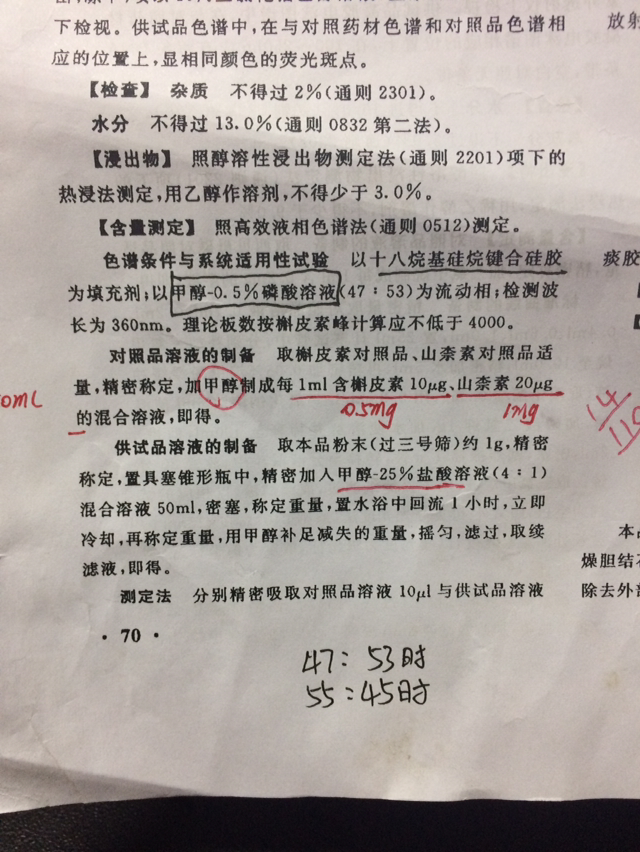 下检视。供试品色谱中,在与对照药材色谱和对照品色谱相
应的位置上,显相同颜色的荧光斑点。
【检查】 杂质 不得过2%(通则2301)。
水分 不得过13.0%(通则0832第二法)。
【浸出物】 照醇溶性浸出物测定法(通则2201)项下的
热浸法测定,用乙醇作溶剂,不得少于3.0%。
【含量测定】 照高效液相色谱法(通则0512)测定。
色谱条件与系统适用性试验 以十八烷基硅烷键合硅胶
为填充剂;以甲醇-0.5%磷酸溶液(47∶53)为流动相;检测波
长为360nm。理论板数按槲皮素峰计算应不低于4000。
对照品溶液的制备 取槲皮素对照品、山柰素对照品适
量,精密称定,加甲醇制成每1ml含槲皮素10μg、山柰素20μg
0.5mg 1mg
的混合溶液,即得。
供试品溶液的制备 取本品粉末(过三号筛)约1g,精密
称定,置具塞锥形瓶中,精密加入甲醇-25%盐酸溶液(4∶1)
混合溶液50ml,密塞,称定重量,置水浴中回流1小时,立即
冷却,再称定重量,用甲醇补足减失的重量,摇匀,滤过,取续
滤液,即得。
测定法 分别精密吸取对照品溶液10μl与供试品溶液
· 70 ·
47: 53时
55:45时
放射
痰胶
本品
燥胆结石
除去外部